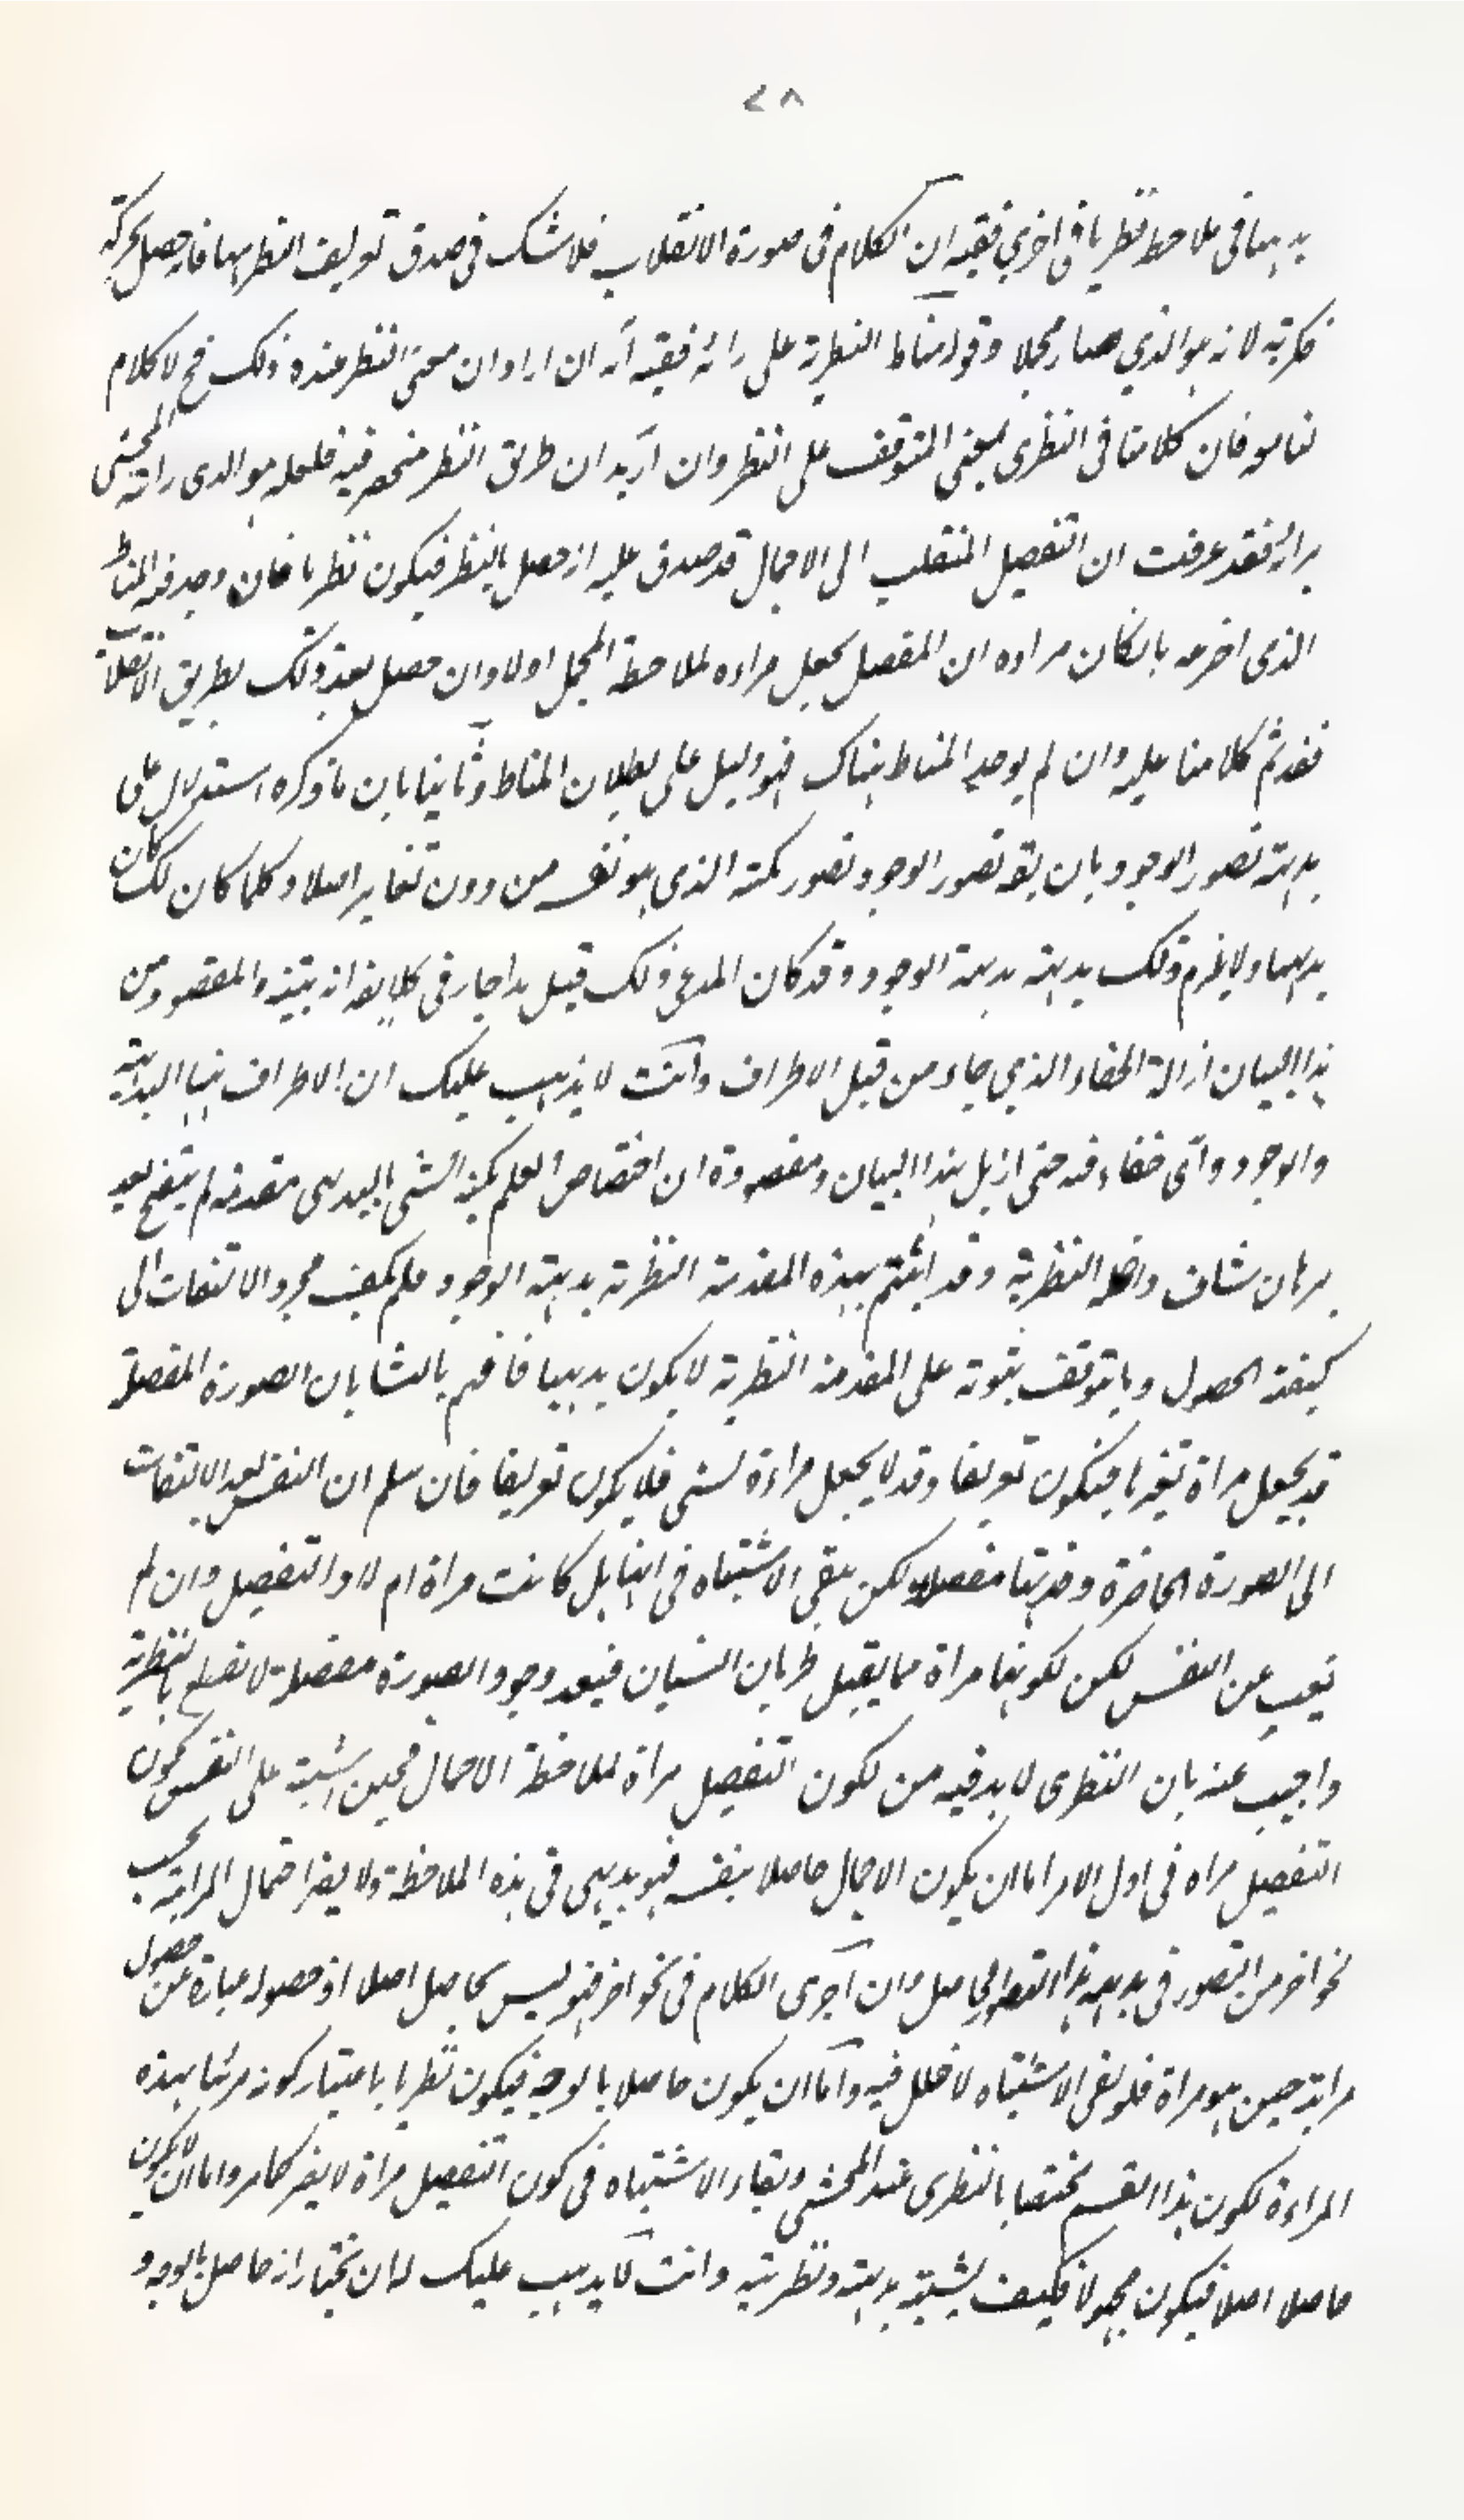 ٢٨
بديهيا فى ملاحظة نظريا فى اخرى ففيه ان الكلام فى صورة الانقلاب فلا شك فى صدق تعريف النظر بها فانه حصل بحركة
فكرية لانه هو الذي صار مجملا وقوله مناط النظرية على رائه ففيه انه ان اراد ان معنى النظر عنده ذلك فح لا كلام
لنا معه فان كلامنا فى النظرى بمعنى المتوقف على النظر وان اريد ان طريق النظر منحصر فيه فلعله هو الذى راته المحشى
برائه فقد عرفت ان التفصيل المنقلب الى الاجمال قد صدق عليه انه حصل بالنظر فيكون نظريا فان وجد فيه المناط
الذى اخترعه بان كان مراده ان المفصل يجعل مراءة لملاحظة المجمل اولا وان حصل بعد ذلك بطريق الانقلاب
فقد تم كلامنا عليه وان لم يوجد المناط هناك فهو دليل على بطلان المناط وثانيا بان ما ذكره استدلال على
بديهة تصور الوجود بان يقه تصور الوجود تصور بكنه الذى هو نفسه من دون تغاير اصلا وكلما كان لك كان
بديهيا ولا يلزم ذلك بديهة بديهة الوجود وقد كان المدعى ذلك قيل هذا جار فى كلا يقه انه يتنبه والمقصود من
هذا البيان ازالة الخفاء الذي جاء من قبل الاطراف وانت لا يذهب عليك ان الاطراف هنها البديهة
والوجود واى خفاء فيه حتى ازيل بهذا البيان ومقصوده ان اختصاص العلم بكنه الشى بالبديهى مقدمة لم يتنقح بعد
برهان شاف واضح النظرية وقد اثبتم بهذه المقدمة النظرية بديهة الوجود فلم يكف مجرد الالتفات الى
كيفية الحصول وما يتوقف ثبوته على المقدمة النظرية لا يكون بديهيا فافهم ثالثا بان الصورة المفصلة
قد يجعل مراة لغيرها فيكون تعريفا وقد لا يجعل مراءة لشى فلا يكون تعريفا فان سلم ان النفس بعد الالتفات
الى الصورة الحاضرة وجدتها مفصلة ولكن يبقى الاشتباه فى انها هل كانت مراة ام لا والتفصيل وان لم
تغيب عن النفس لكن كونها مراة مما يقبل طريان النسيان فبعد وجود الصورة مفصلة لا نقطع بالنظرية
واجيب عنه بان النظرى لا بد فيه من كون التفصيل مراة لملاحظة الاجمال فحين اشتبه على النفس كون
التفصيل مراه فى اول الامر اما ان يكون الاجمال حاصلا بنفسه فهو بديهى فى هذه الملاحظة ولا يضر احتمال المراتية بحسب
نحو اخر من التصور فى بديهية هذا التصور الحاصل وان اجرى الكلام فى نحو اخر فهو ليس بحاصل اصلا اذ حصوله عبارة عن حصول
مرايته حين هو مراة فلو بقى الاشتباه لا خلل فيه واما ان يكون حاصلا بالوجه فيكون نظريا باعتبار كونه مرئيا بهذه
المراءة لكون هذا القسم مختصا بالنظرى عند المحشى وبقاء الاشتباه فى كون التفصيل مراة لا يضر كما مر واما ان لا يكون
حاصلا اصلا فيكون مجهولا فكيف يشتبه بديهته ونظريته وانت لا يذهب عليك له ان يختار انه حاصل بالوجه و